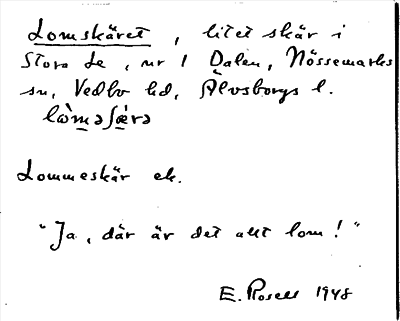 Lomskäret, litet skär i
Stora Le, nr 1 Dalen, Nössemarks
sn, Vedbo hd, Älvsborgs l.
lòməʃærə
Lommeskär ek.
"Ja, där är det allt lom!"
E. Rosell 1948